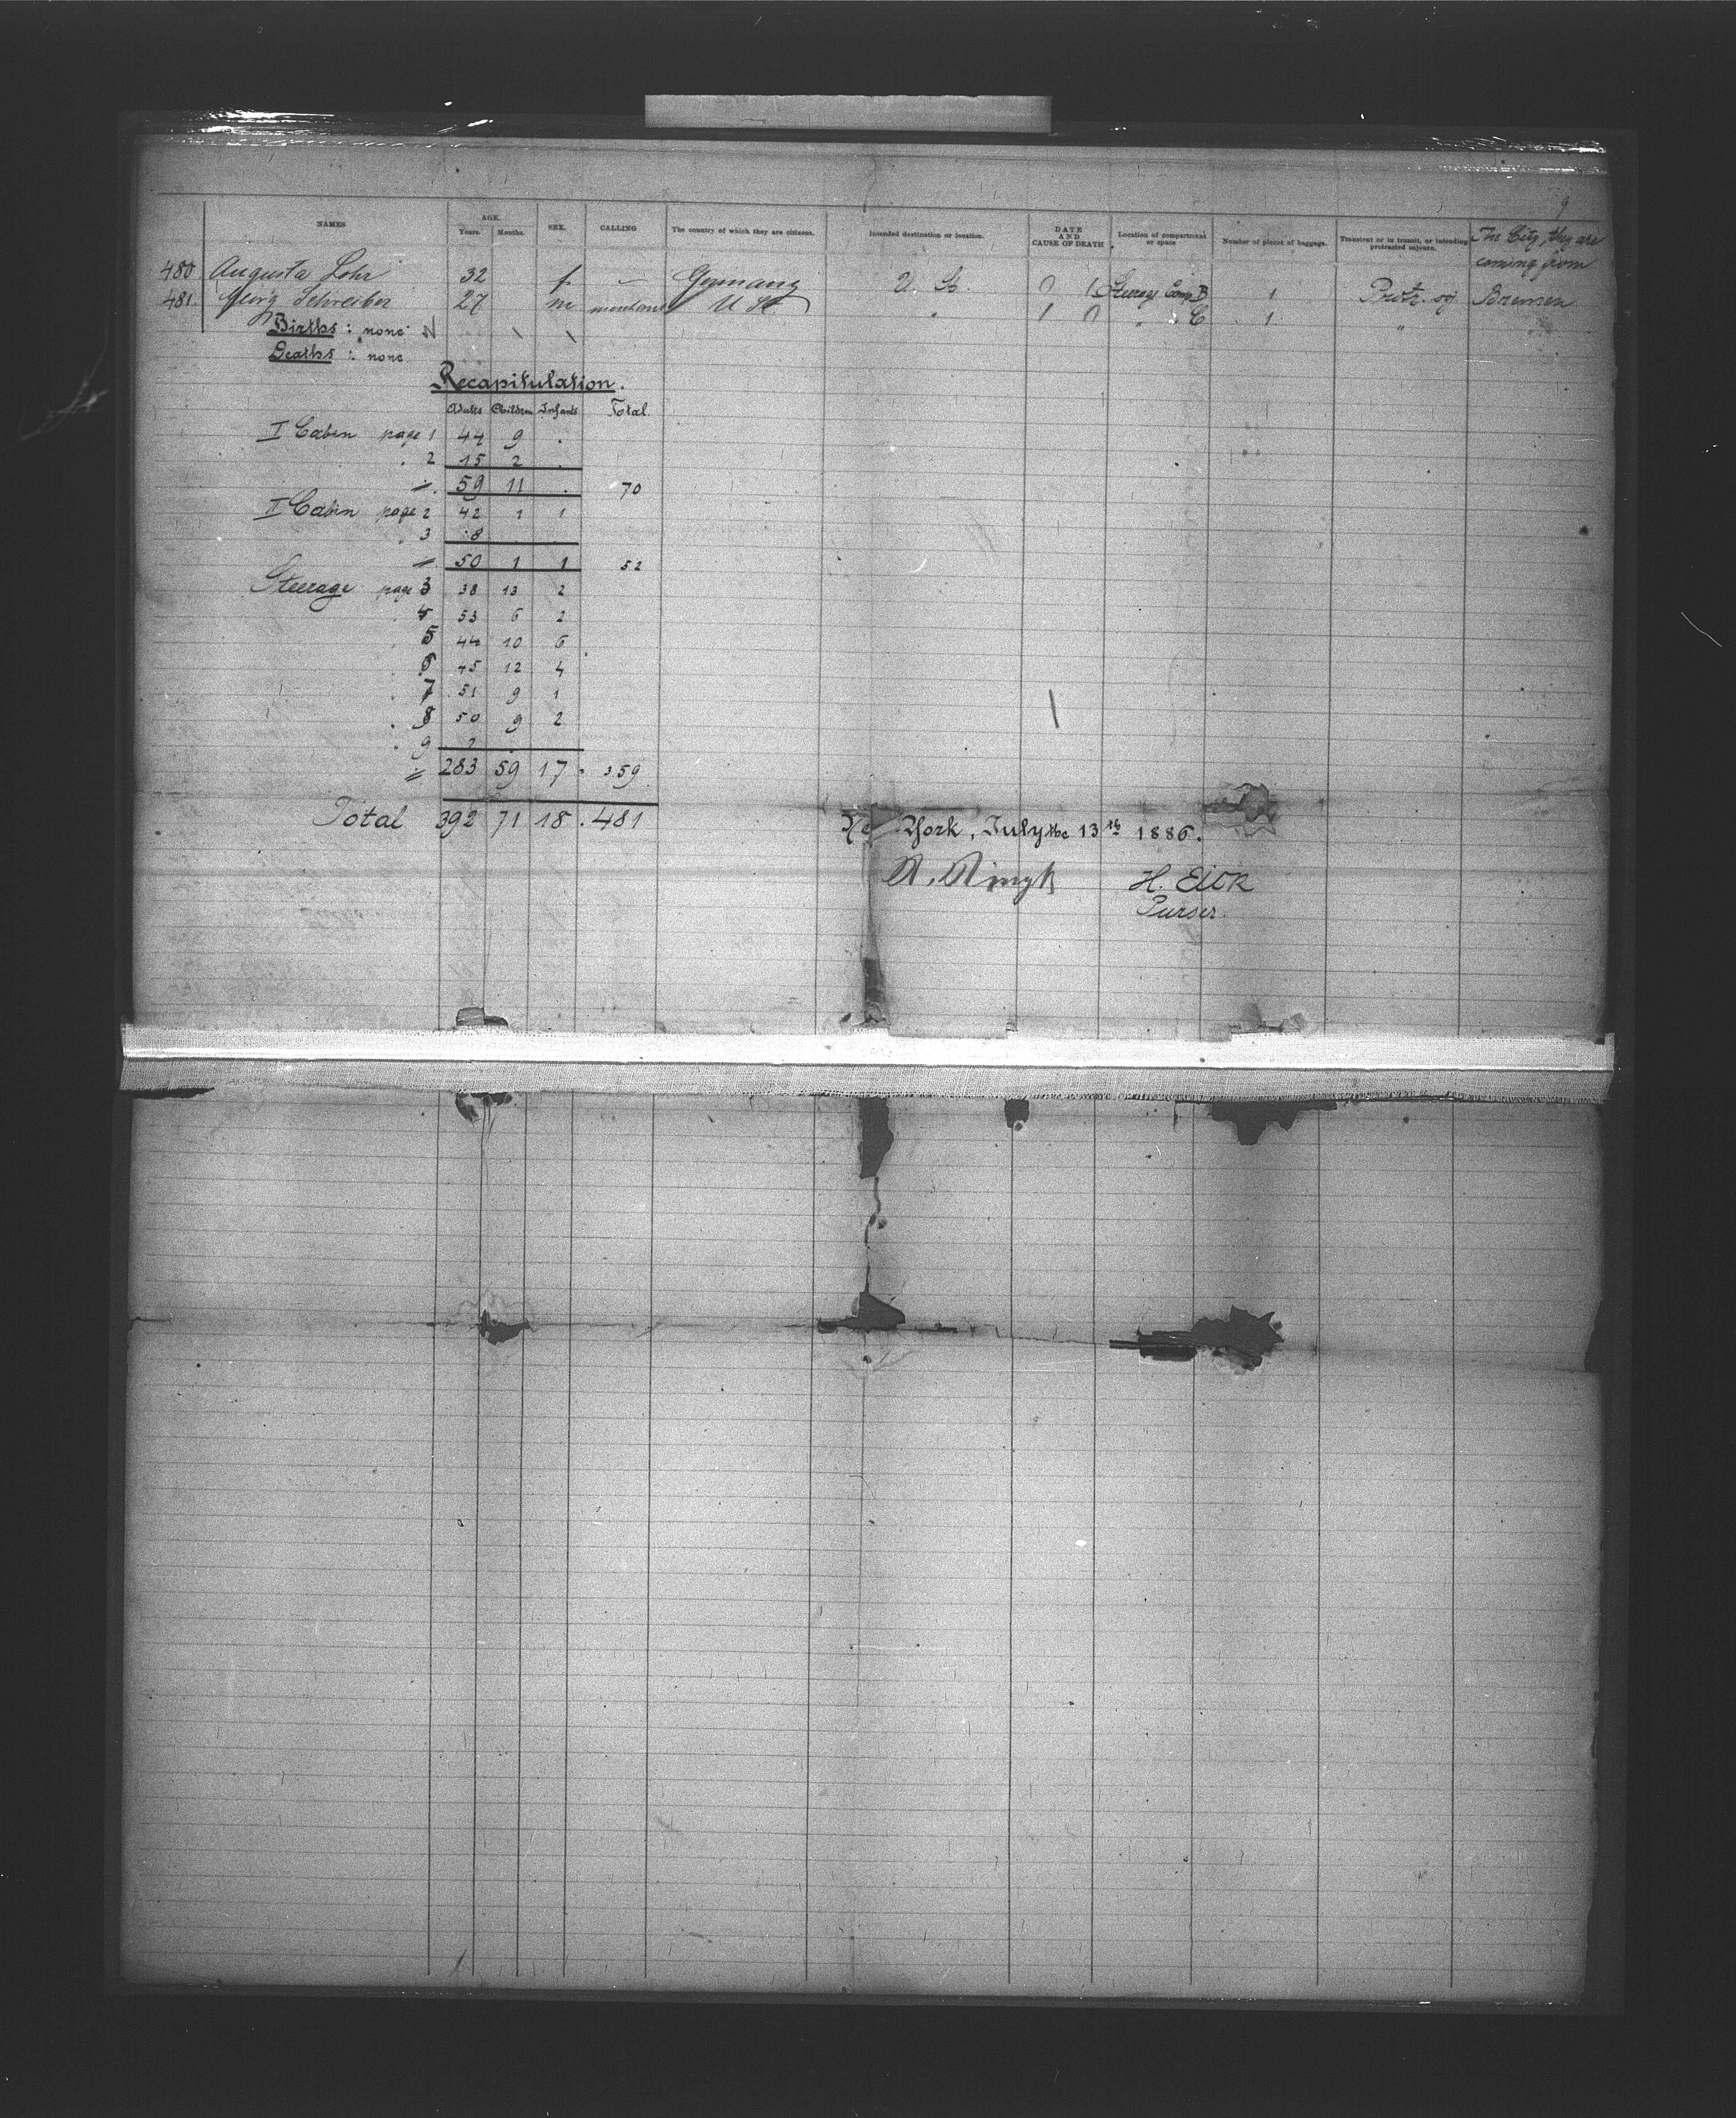 9
NAMES AGE. Years. Months. SEX. CALLING The country of which they are citizens. Intended destination or location. DATE AND CAUSE OF DEATH Location of compartment or space Number of pieces of baggage. Transient or in transit, or intending protracted sojourn. The City, they are coming from
480. Augusta Lohr 32 f. — Germany U. St. 0 1 Steerage Comp. B 1 Protr. soj Bremen
481. Georg Schreiber 27 m U St " 1 0 " " C 1 " "
Births : none
Deaths : none
Recapitulation.
Adults Children Infants Total.
I Cabin page 1 44 9 .
. 2 15 2 .
59 11 . 70
II Cabin page 2 42 1 1
. 3 8
50 1 1 52
Steerage page 3 38 13 2
. 4 53 6 2
. 5 44 10 6
. 6 45 12 4
. 7 51 9 1
. 8 50 9 2
. 9 2
283 59 17 . 359
Total 392 71 18 . 481
York, July the 13th 1886.
H. Eick
Purser.